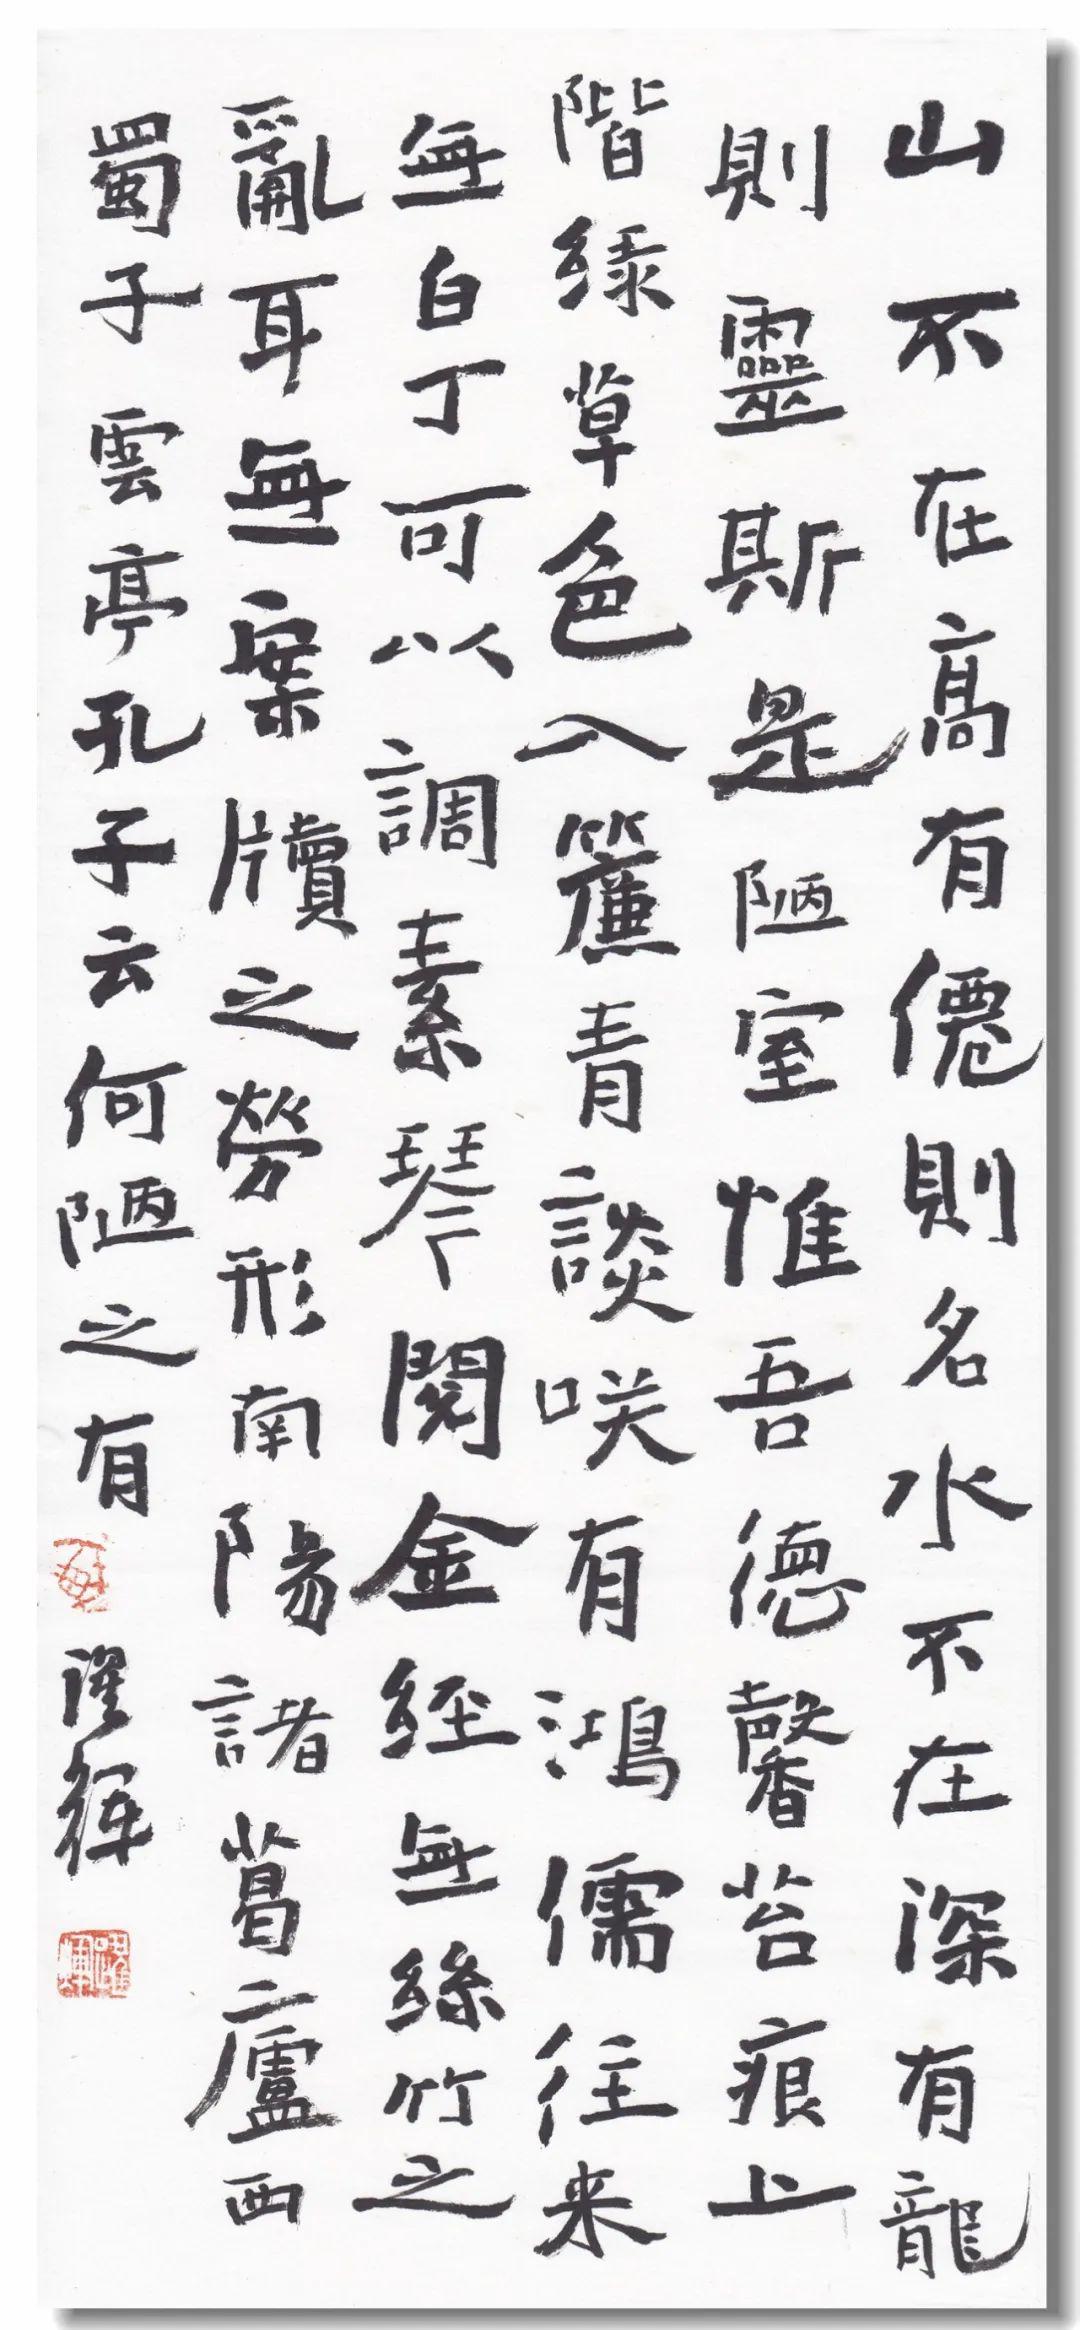 山不在高有僊則名水不在深有龍
則靈斯是陋室惟吾德馨苔痕上
階緑草色入簾青談咲有鴻儒往来
無白丁可以調素琴閲金經無絲竹之
亂耳無案牘之勞形南陽諸葛廬西
蜀子雲亭孔子云何陋之有